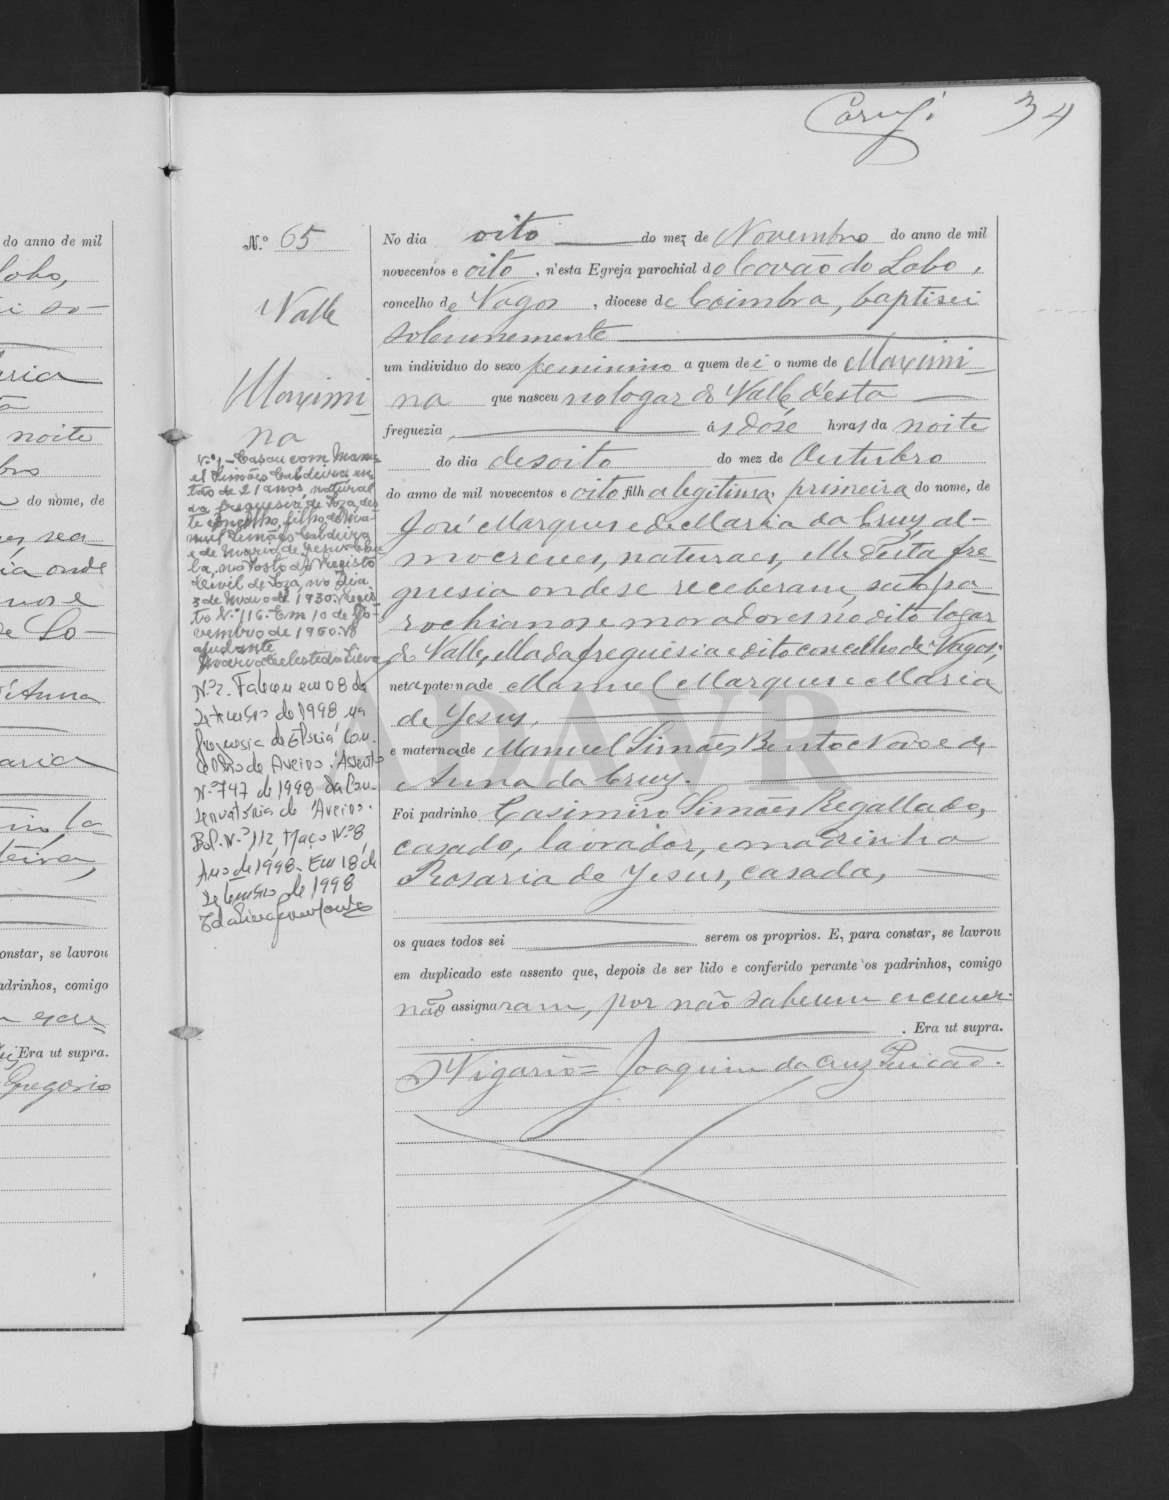 34
do anno de mil
Lobo,
noite
do nome, de
ria onde
de Lo-
d'Anna
aria
teira,
constar, se lavrou
adrinhos, comigo
Era ut supra.
Gregorio
N.º 65
Valle
Maximi
na
Nº1 - Casou com Manu-
el Simões Cabdeira en-
tão de 21 anos, natural
da freguesia de Soza, des-
te concelho, filho de Ma-
nuel Simões Cabdeira
e de Maria de Jesus
no Posto do Registo
Civil de Soza, no dia
3 de Março de 1930. Regis-
to Nº 116. Em 10 de No-
vembro de 1950. O
ajudante
Maria Celeste da
Nº2. Faleceu em 08 de
Setembro de 1998 na
freguesia de Glória, Con-
celho de Aveiro. Assento
Nº 747 de 1998 da Con-
servatória de Aveiro.
Bol. Nº 112, Maço Nº 8
Ano de 1998. Em 18 de
Setembro de 1998
No dia oito do mez de Novembro do anno de mil
novecentos e oito, n'esta Egreja parochial do Covão do Lobo,
concelho de Vagos, diocese de Coimbra, baptisei
solemnemente
um individuo do sexo feminino a quem dei o nome de Maximi
na que nasceu no logar do Valle d'esta
freguezia, ás dose horas da noite
do dia desoito do mez de Outubro
do anno de mil novecentos e oito filha legitima, primeira do nome, de
José Marques e de Maria da Cruz, al-
mocreves, naturaes, elle d'esta fre-
guesia onde se receberam, sua pa-
rochianos e moradores no dito logar
do Valle, ella da freguesia e dito concelho de Vagos;
neta paterna de Manuel Marques e Maria
de Jesus,
e materna de Manuel Simões Bento e Novo e de
Anna da Cruz.
Foi padrinho Casimiro Simões Regallado,
casado, lavrador, e madrinha
Rosaria de Jesus, casada,
os quaes todos sei serem os proprios. E, para constar, se lavrou
em duplicado este assento que, depois de ser lido e conferido perante os padrinhos, comigo
não assignaram, por não saberem escrever.
. Era ut supra.
O Vigario = Joaquim da Cruz
ADAVR